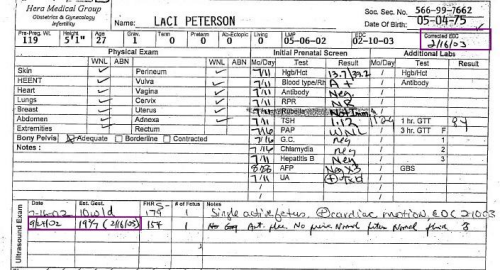 Hera Medical Group
Obstetrics & Gynecology
Infertility
Name: LACI PETERSON
Soc. Sec. No. 566-99-7662
Date Of Birth: 05-04-75
Pre-Preg. Wt. Height Age Grav. Term Prem Ab-Ectopic Living LMP EDC Corrected EDC
119 5'1" 27 1 0 0 0 0 05-06-02 02-10-03 2/16/03
Physical Exam Initial Prenatal Screen Additional Labs
WNL ABN WNL ABN Mo/Day Test Result Mo/Day Test Result
Skin Perineum 7/11 Hgb/Hct Hgb/Hct
HEENT Vulva 7/11 Blood type/Rh A + Antibody
Heart Vagina 7/11 Antibody Neg
Lungs Cervix 7/11 RPR NR
Breast Uterus 7/11 Rubella Not Imm
Abdomen Adnexa 7/11 TSH 1.12 1 hr. GTT 94
Extremities Rectum 7/16 PAP WNL 3 hr. GTT F
Bony Pelvis Adequate Borderline Contracted 7/16 G.C. neg 1
Notes : 7/16 Chlamydia neg 2
7/11 Hepatitis B Neg 3
AFP GBS
7/11 UA
Ultrasound Exam
Date Est. Gest. FHR # of Fetus Notes
7-16-02 179 1 Single active fetus, cardiac motion, EDC
9/24/02 19 (2/16/03) 154 1